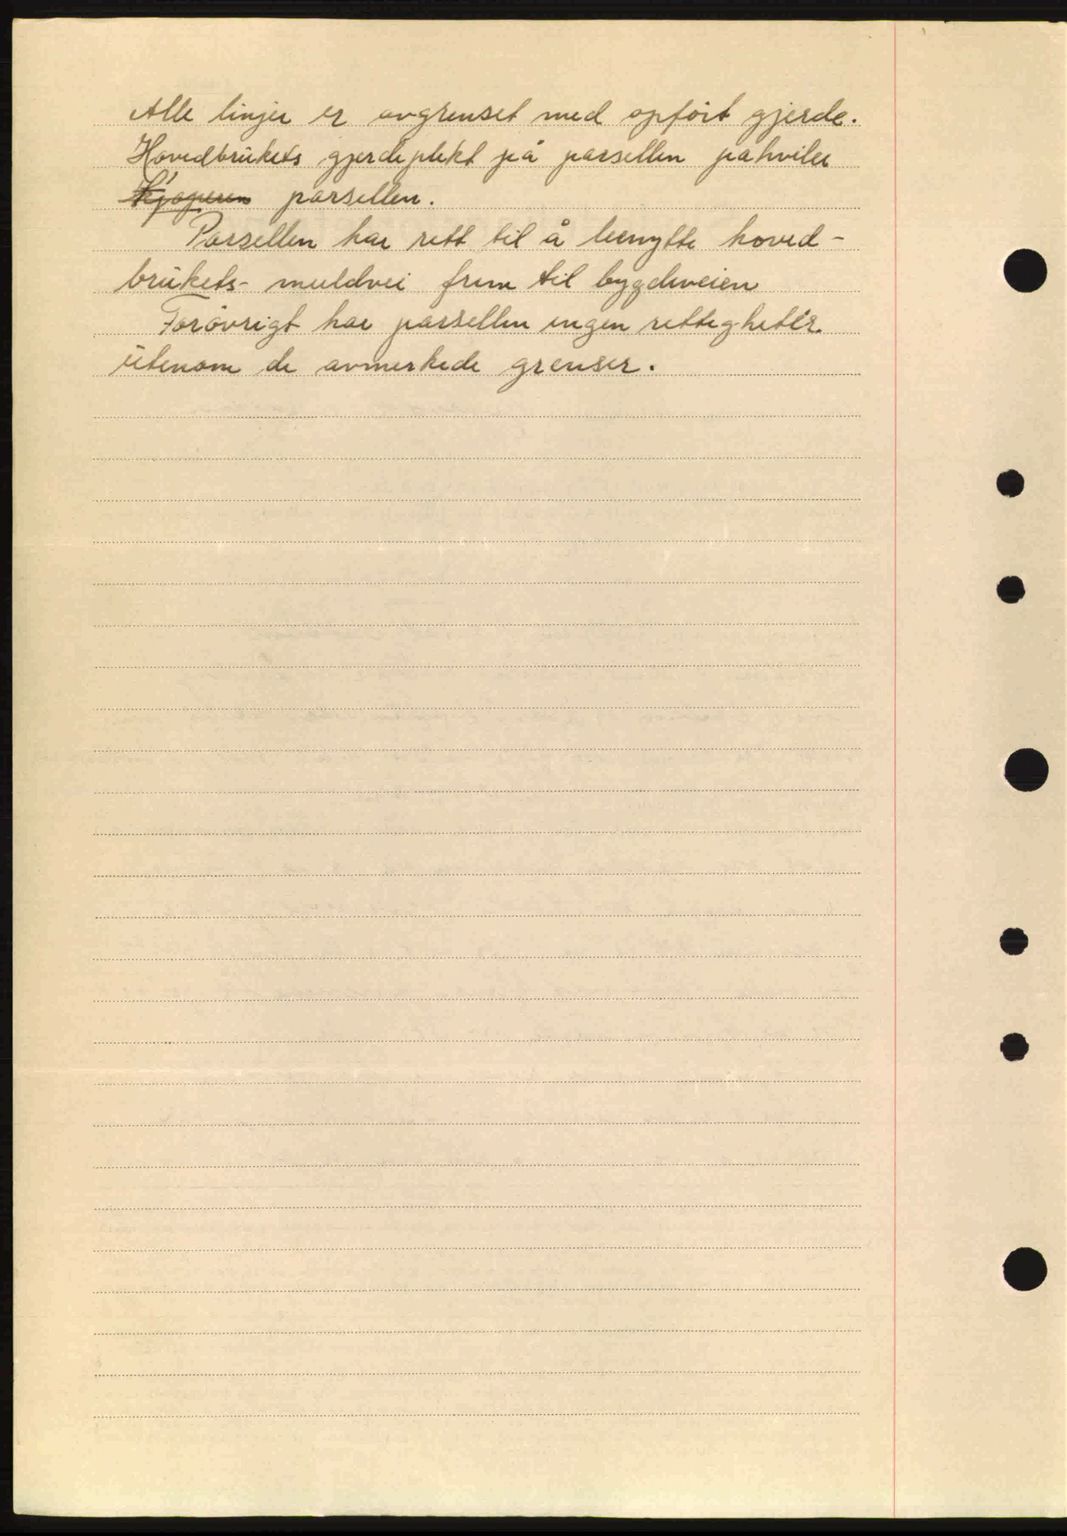 Alle linjer er avgrenset med opført gjerde.
Hovedbrukets gjerdeplikt på parsellen påhviler
kjøperen parsellen.
Parsellen har rett til å benytte hoved-
brukets muldvei frem til bygdeveien
Forøvrigt har parsellen ingen rettigheter
utenom de avmerkede grenser.